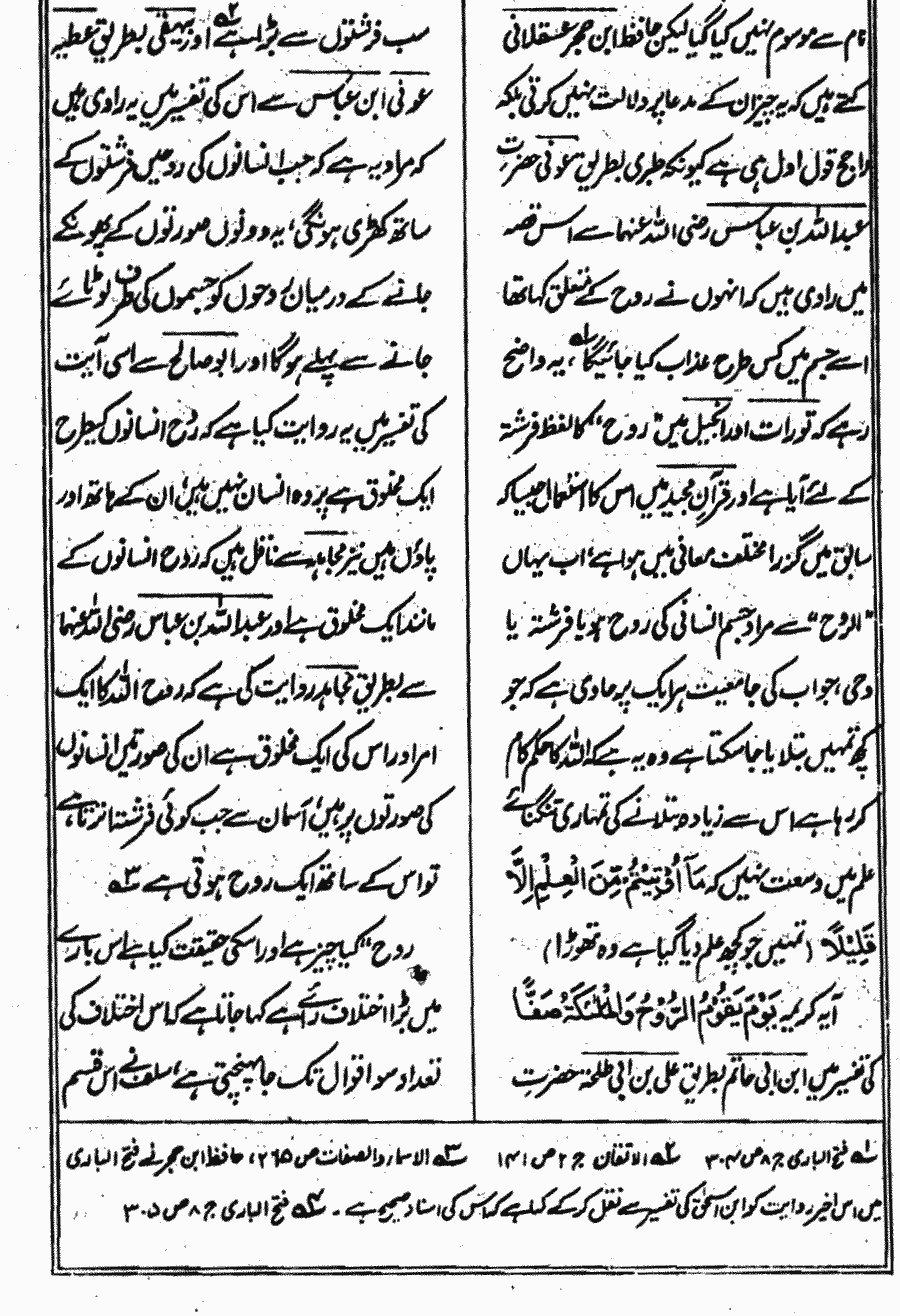 نام سے موسوم نہیں کیا گیا لیکن حافظ ابن حجر عسقلانی
کہتے ہیں کہ یہ چیز ان کے مدعا پر دلالت نہیں کرتی بلکہ
راجح قول اول ہی ہے کیونکہ طبری بطریق عوفی حضرت
عبداللہ بن عباس رضی اللہ عنہما سے اس قصہ
میں راوی ہیں کہ انہوں نے روح کے متعلق کہا تھا
اسے جسم میں کس طرح عذاب کیا جائیگا؟ ۱ یہ واضح
رہے کہ تورات اور انجیل میں "روح" کا لفظ فرشتہ
کے لئے آیا ہے اور قرآن مجید میں اس کا استعمال جیسا کہ
سابق میں گزرا مختلف معانی میں ہوا ہے، اب یہاں
"الروح" سے مراد جسم انسانی کی روح ہو یا فرشتہ یا
وحی، جواب کی جامعیت ہر ایک پر حاوی ہے کہ جو
کچھ تمہیں بتلایا جا سکتا ہے وہ یہ ہے کہ اللہ کا حکم کام
کر رہا ہے اس سے زیادہ بتلانے کی تمہاری تنگنائے
علم میں وسعت نہیں کہ مَآ اُوْتِيْتُمْ مِّنَ الْعِلْمِ اِلَّا
قَلِيْلًا (تمہیں جو کچھ علم دیا گیا ہے وہ تھوڑا)
آیہ کریمہ يَوْمَ يَقُوْمُ الرُّوْحُ وَالْمَلٰٓئِكَةُ صَفًّا
کی تفسیر میں ابن ابی حاتم بطریق علی بن ابی طلحہ حضرت
سب فرشتوں سے بڑا ہے ۲ اور بیہقی بطریق عطیہ
عوفی ابن عباس سے اس کی تفسیر میں یہ راوی ہیں
کہ مراد یہ ہے کہ جب انسانوں کی روحیں فرشتوں کے
ساتھ کھڑی ہونگی، یہ دونوں صورتوں کے پھونکے
جانے کے درمیان، روحوں کو جسموں کی طرف لوٹائے
جانے سے پہلے ہو گا اور ابو صالح سے اسی آیت
کی تفسیر میں یہ روایت کیا ہے کہ روح انسانوں کیطرح
ایک مخلوق ہے پر وہ انسان نہیں ہیں، ان کے ہاتھ اور
پاؤں ہیں نیز مجاہد سے ناقل ہیں کہ روح انسانوں کے
مانند ایک مخلوق ہے اور عبداللہ بن عباس رضی اللہ عنہما
سے بطریق مجاہد روایت کی ہے کہ روح اللہ کا ایک
امر اور اس کی ایک مخلوق ہے ان کی صورتیں انسانوں
کی صورتوں پر ہیں، آسمان سے جب کوئی فرشتہ اترتا ہے،
تو اس کے ساتھ ایک روح ہوتی ہے ۳
روح" کیا چیز ہے اور اسکی حقیقت کیا ہے اس بارے
میں بڑا اختلاف رائے ہے کہا جاتا ہے کہ اس اختلاف کی
تعداد سو اقوال تک جا پہنچتی ہے، سلف نے اس قسم
۱ فتح الباری ج ۸ ص ۳۰۴ ۲ الاتقان ج ۲ ص ۱۴۱ ۳ الاسماء والصفات ص ۲۶۵، حافظ ابن حجر نے فتح الباری
میں اس اخیر روایت کو ابن اسحٰق کی تفسیر سے نقل کر کے کہا ہے کہ اس کی اسناد صحیح ہے۔ ۴ فتح الباری ج ۸ ص ۳۰۵